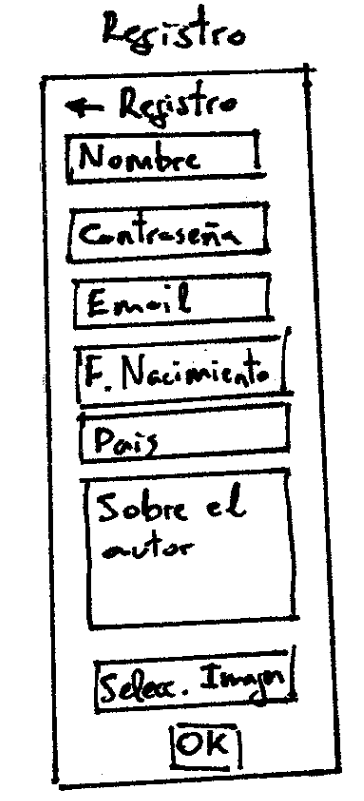 Registro
← Registro
Nombre
Contraseña
Email
F. Nacimiento
Pais
Sobre el
autor
Selecc. Imagen
OK